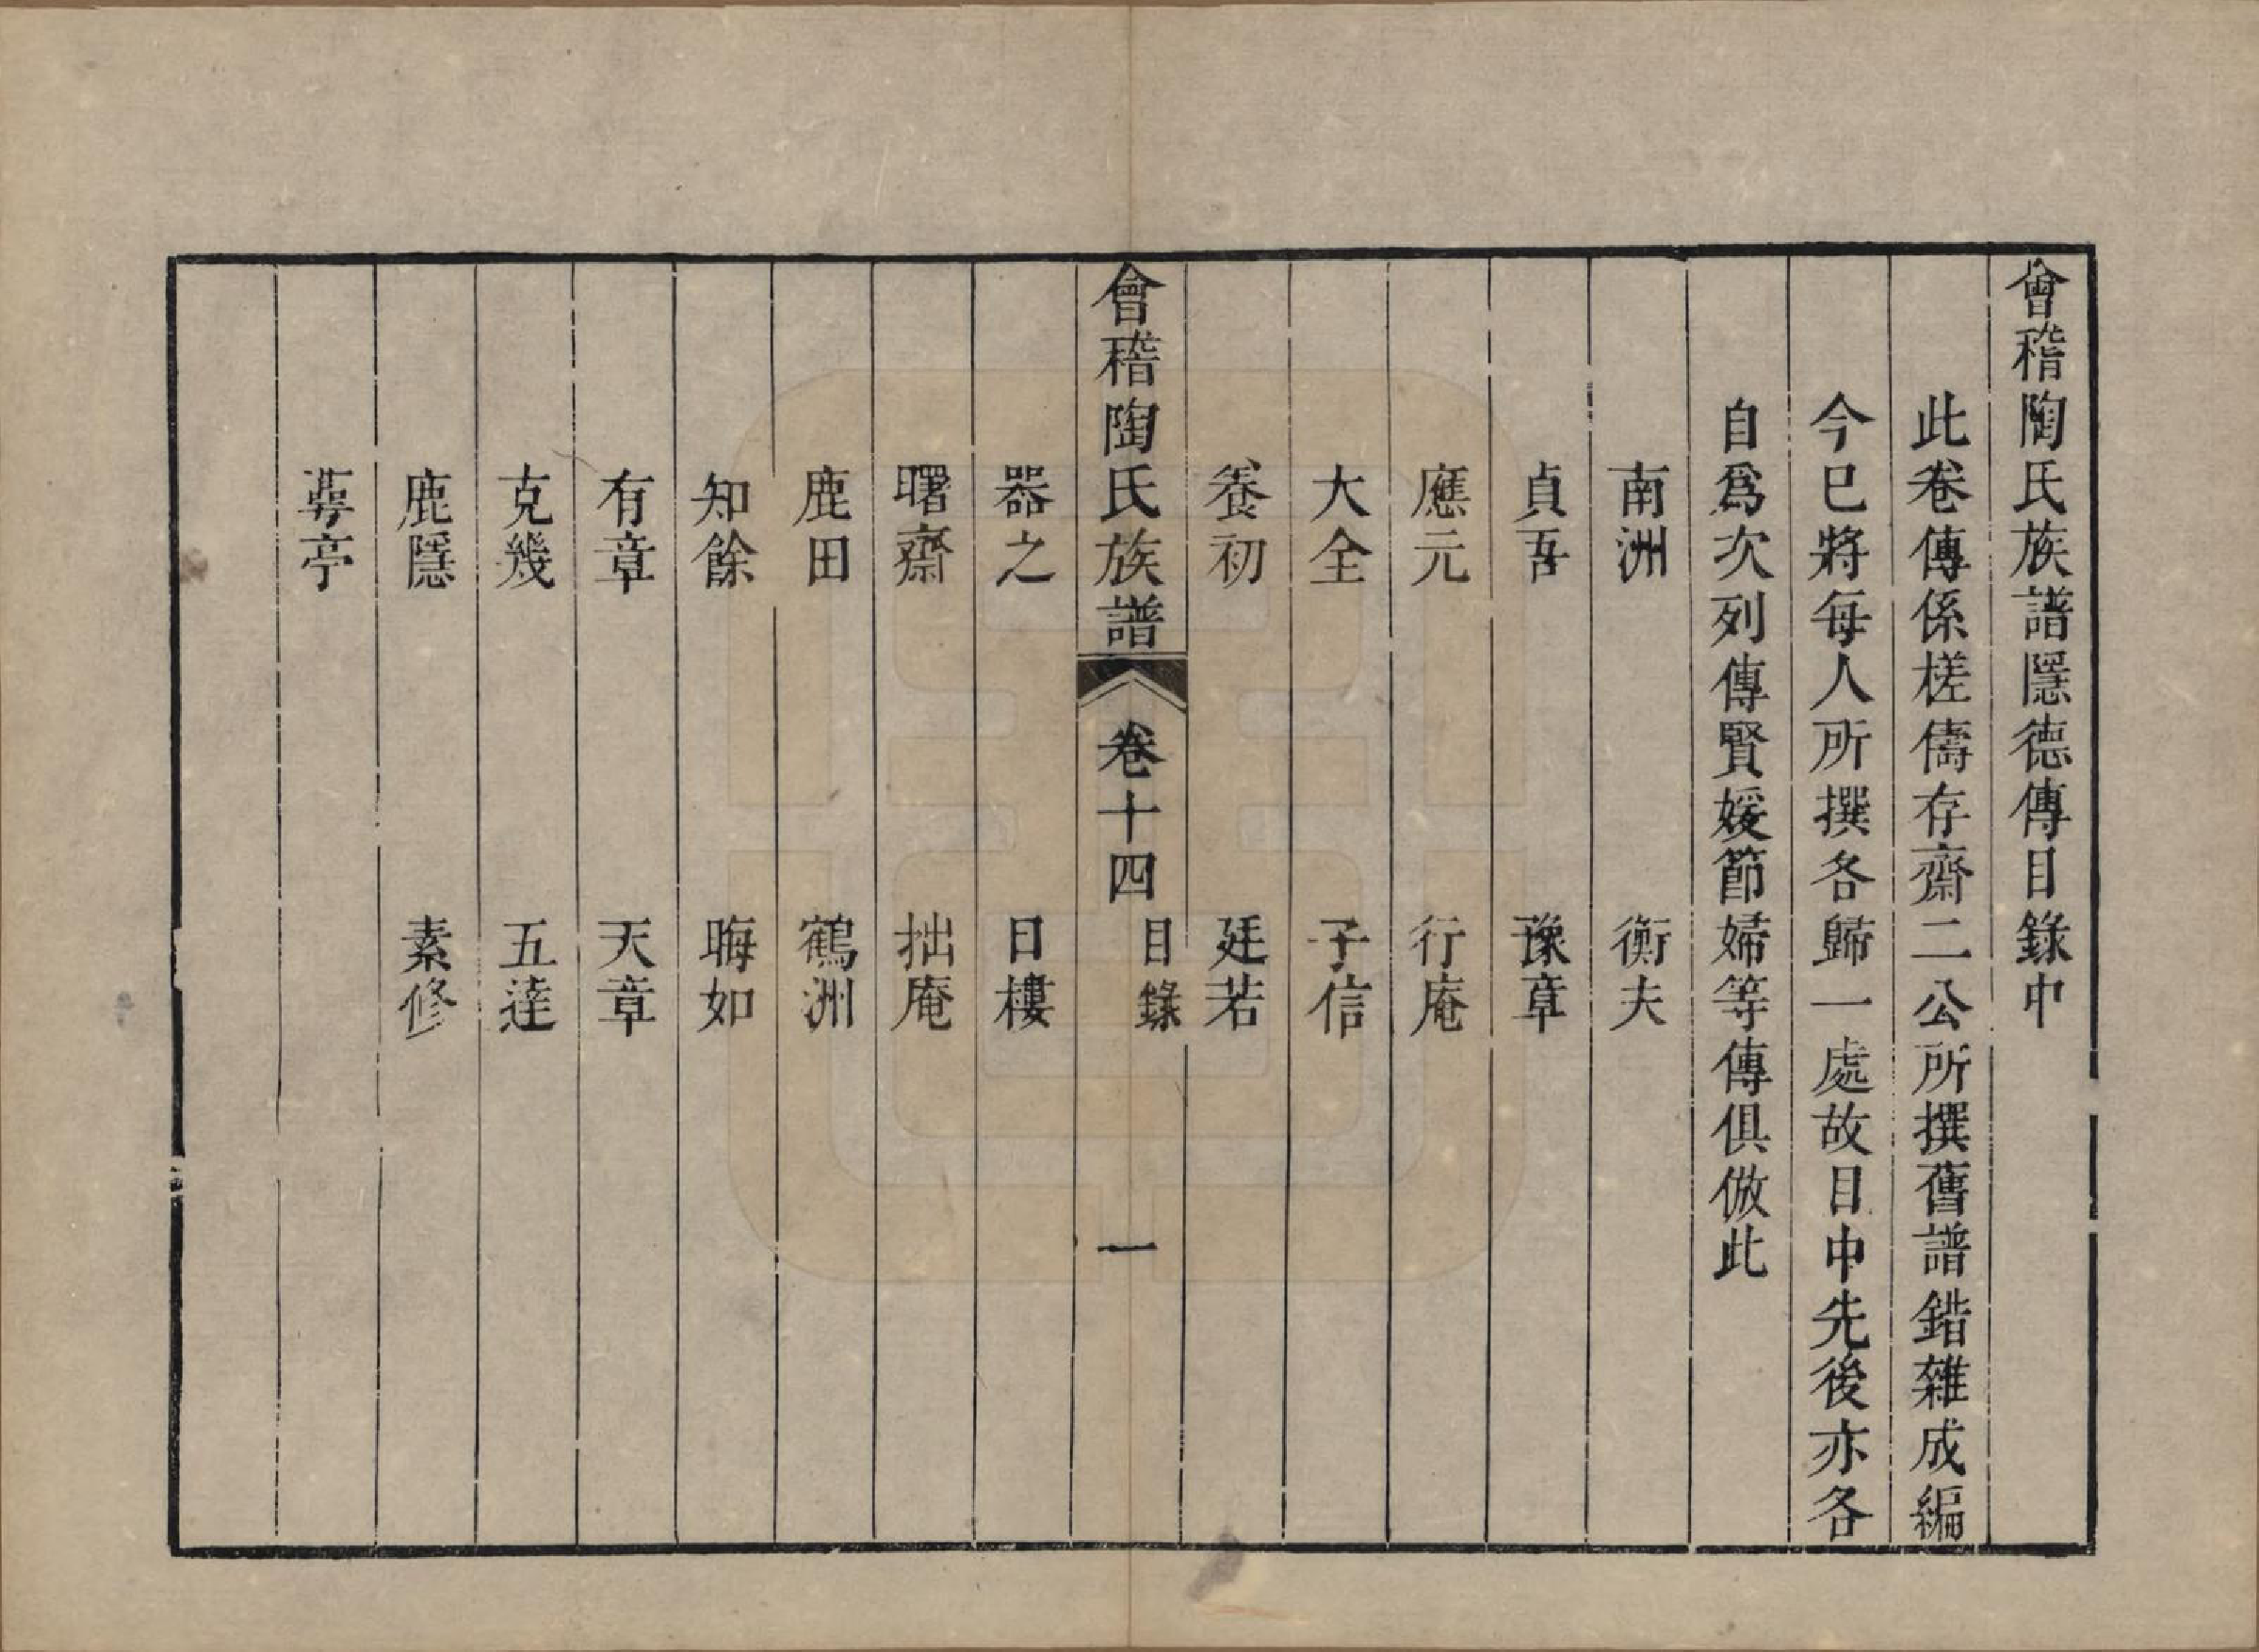 會稽陶氏族譜隱德傳目錄中
此卷傳係槎儔存齋二公所撰舊譜錯雜成編
今已將每人所撰各歸一處故目中先後亦各
自爲次列傳賢媛節婦等傳俱倣此
南洲　衡夫
貞吾　豫章
應元　行庵
大全　子信
養初　廷若
會稽陶氏族譜　卷十四　目錄　一
器之　日樓
曙齋　拙庵
鹿田　鶴洲
知餘　晦如
有章　天章
克幾　五達
鹿隱　素修
蕚亭